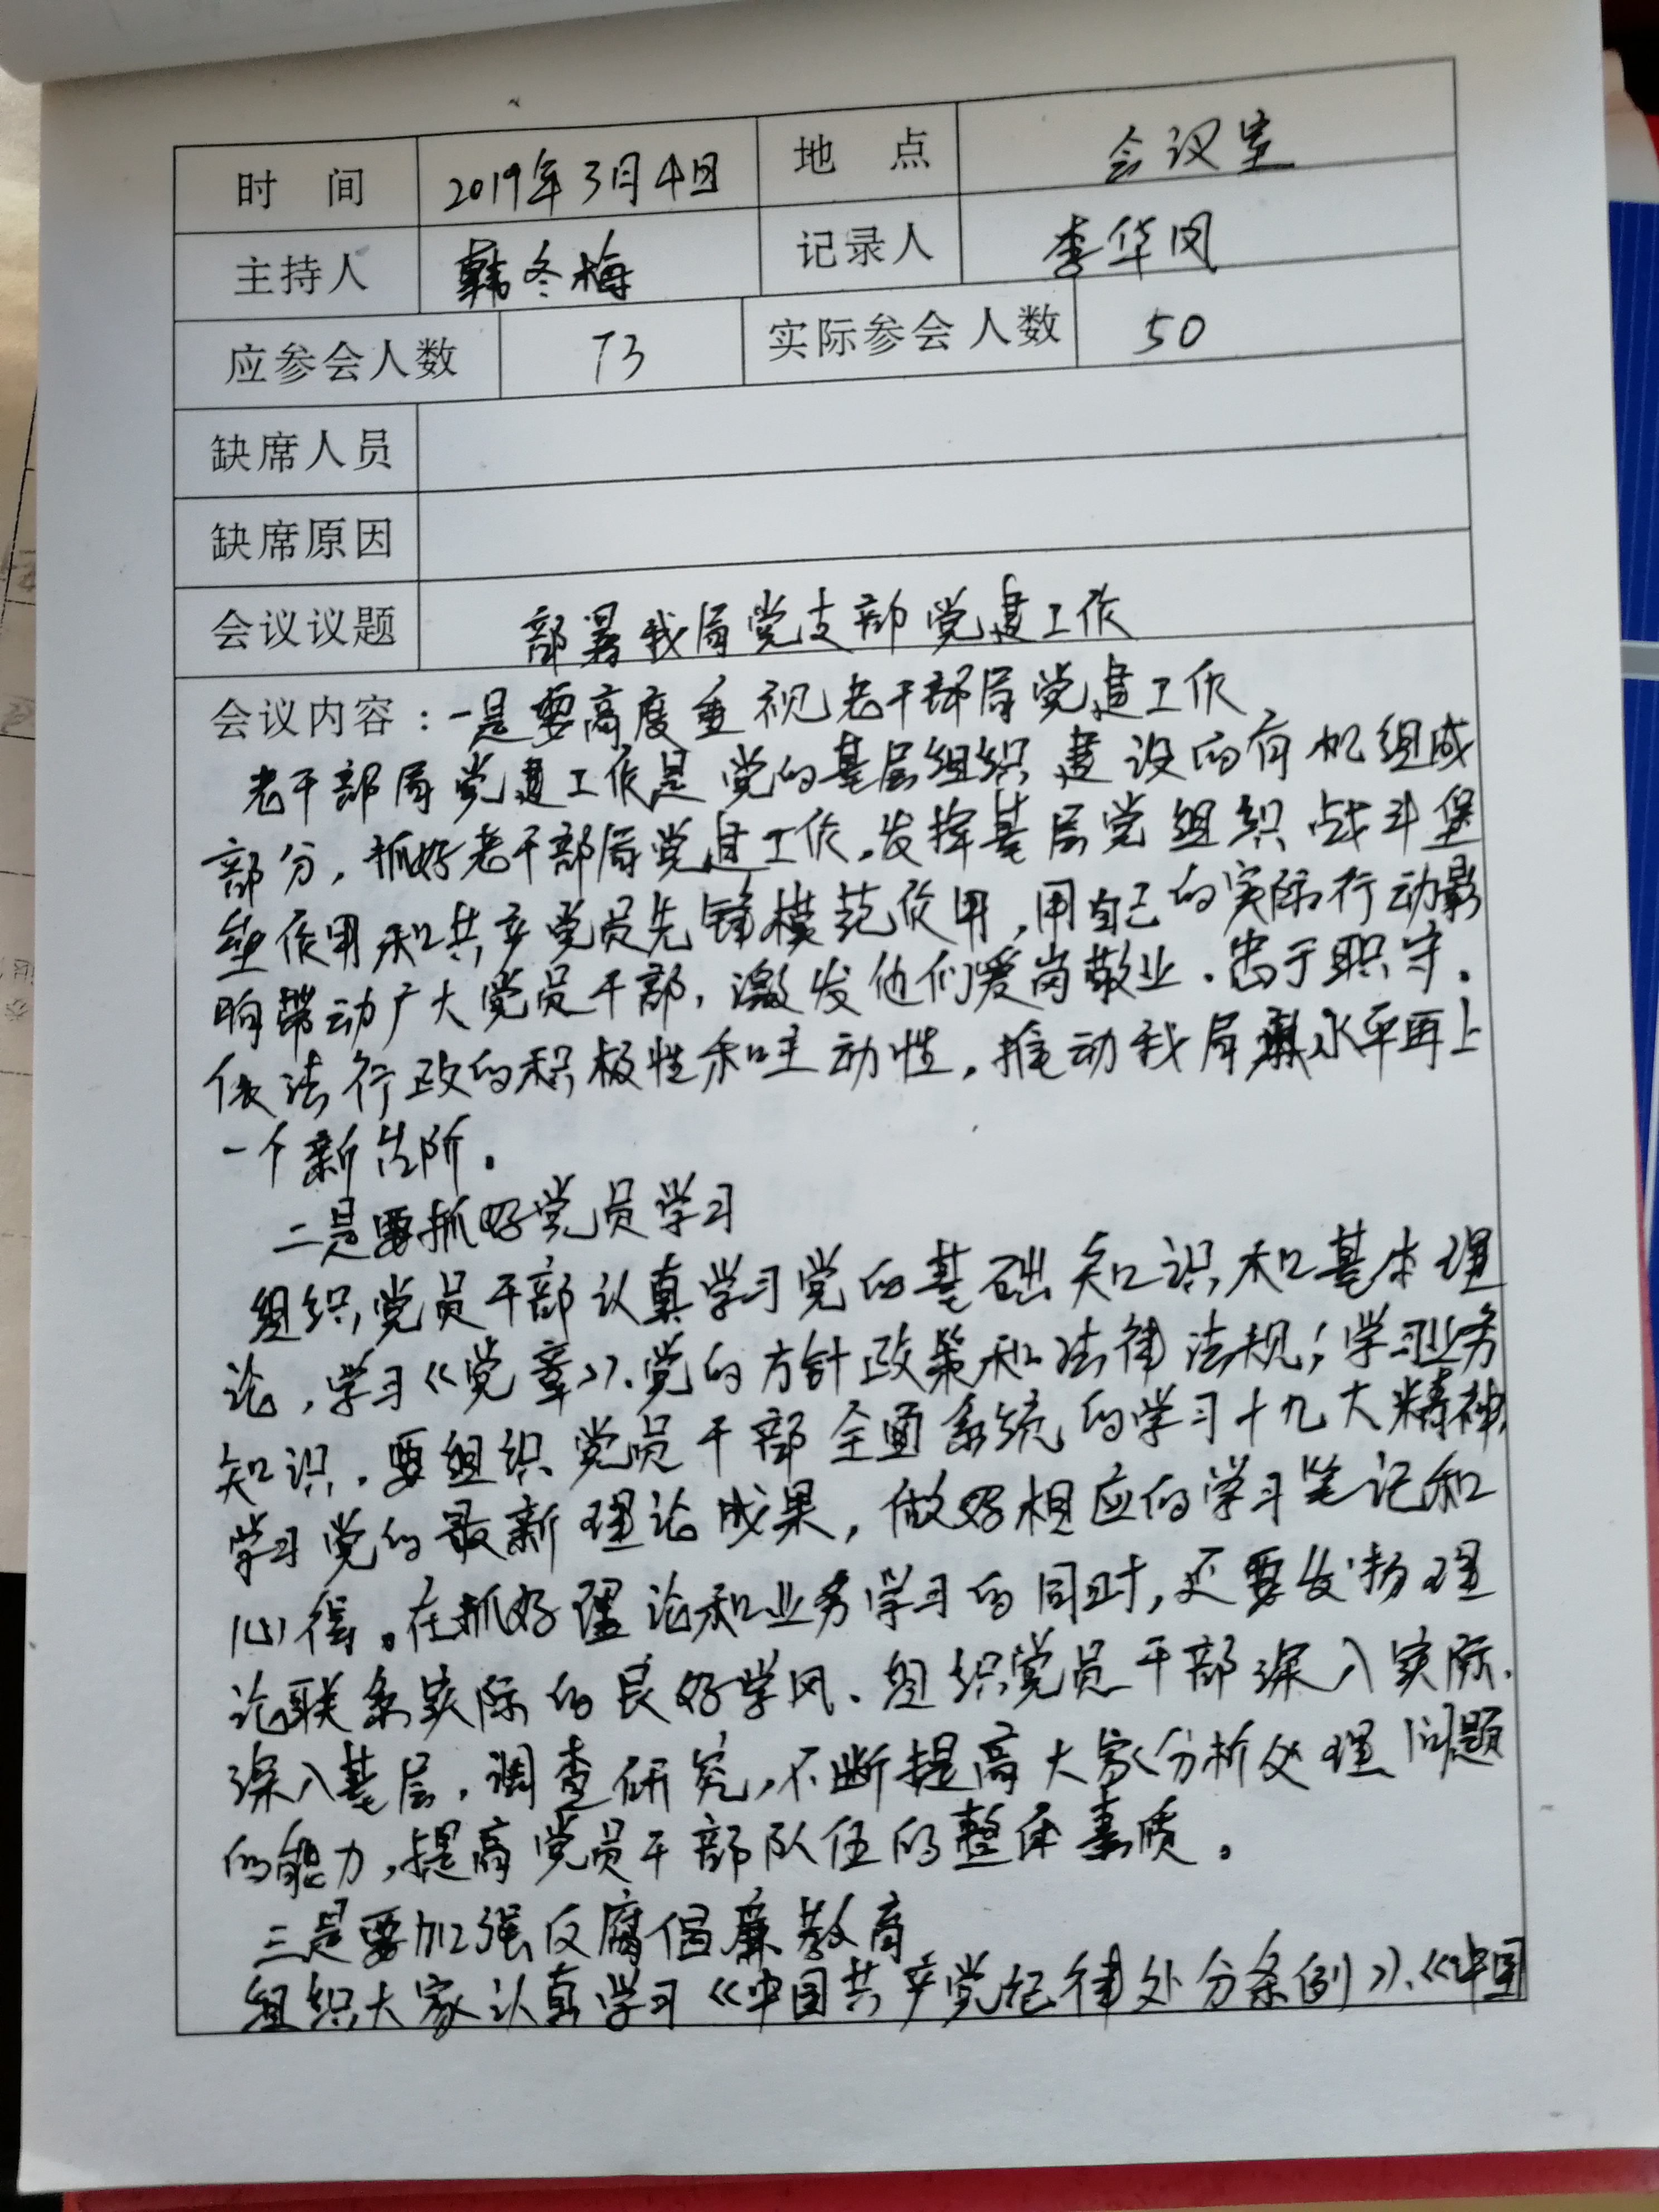 时 间 2019年3月4日 地 点 会议室
主持人 韩冬梅 记录人 李华风
应参会人数 73 实际参会人数 50
缺席人员
缺席原因
会议议题 部署我局党支部党建工作
会议内容：一是要高度重视老干部局党建工作
老干部局党建工作是党的基层组织建设的有机组成
部分，抓好老干部局党建工作，发挥基层党组织战斗堡
垒作用和共产党员先锋模范作用，用自己的实际行动影
响带动广大党员干部，激发他们爱岗敬业、忠于职守、
依法行政的积极性和主动性，推动我局水平再上
一个新台阶。
二是要抓好党员学习
组织党员干部认真学习党的基础知识和基本理
论，学习《党章》、党的方针政策和法律法规；学习业务
知识。要组织党员干部全面系统的学习十九大精神，
学习党的最新理论成果，做好相应的学习笔记和
心得。在抓好理论和业务学习的同时，还要发扬理
论联系实际的良好学风、组织党员干部深入实际、
深入基层，调查研究，不断提高大家分析处理问题
的能力，提高党员干部队伍的整体素质。
三是要加强反腐倡廉教育
组织大家认真学习《中国共产党纪律处分条例》、《中国